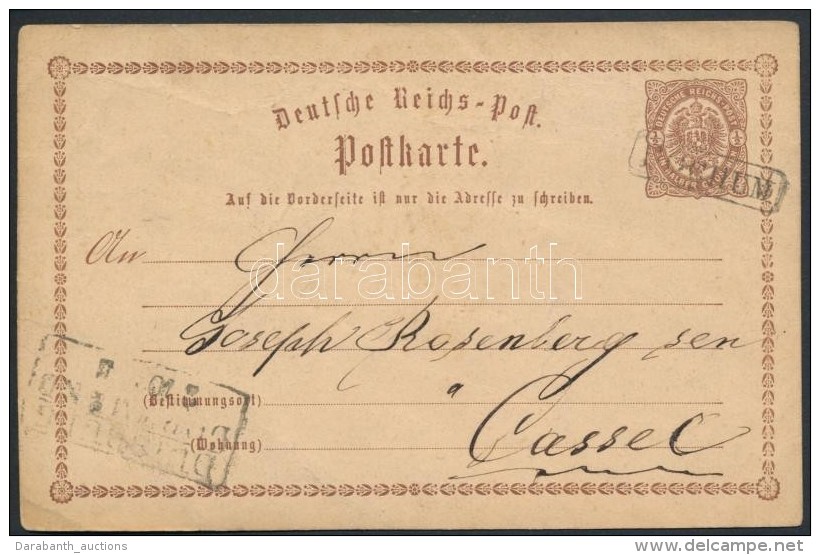 Deutsche Reichs-Post.
Postkarte.
DEUTSCHE REICHS-POST
Auf die Vorderseite ist nur die Adresse zu schreiben.
An Herrn
darabanth
Joseph Rosenberg sen
(Bestimmungsort)
Cassel
(Wohnung)
Darabanth_auctions
delcampe.net